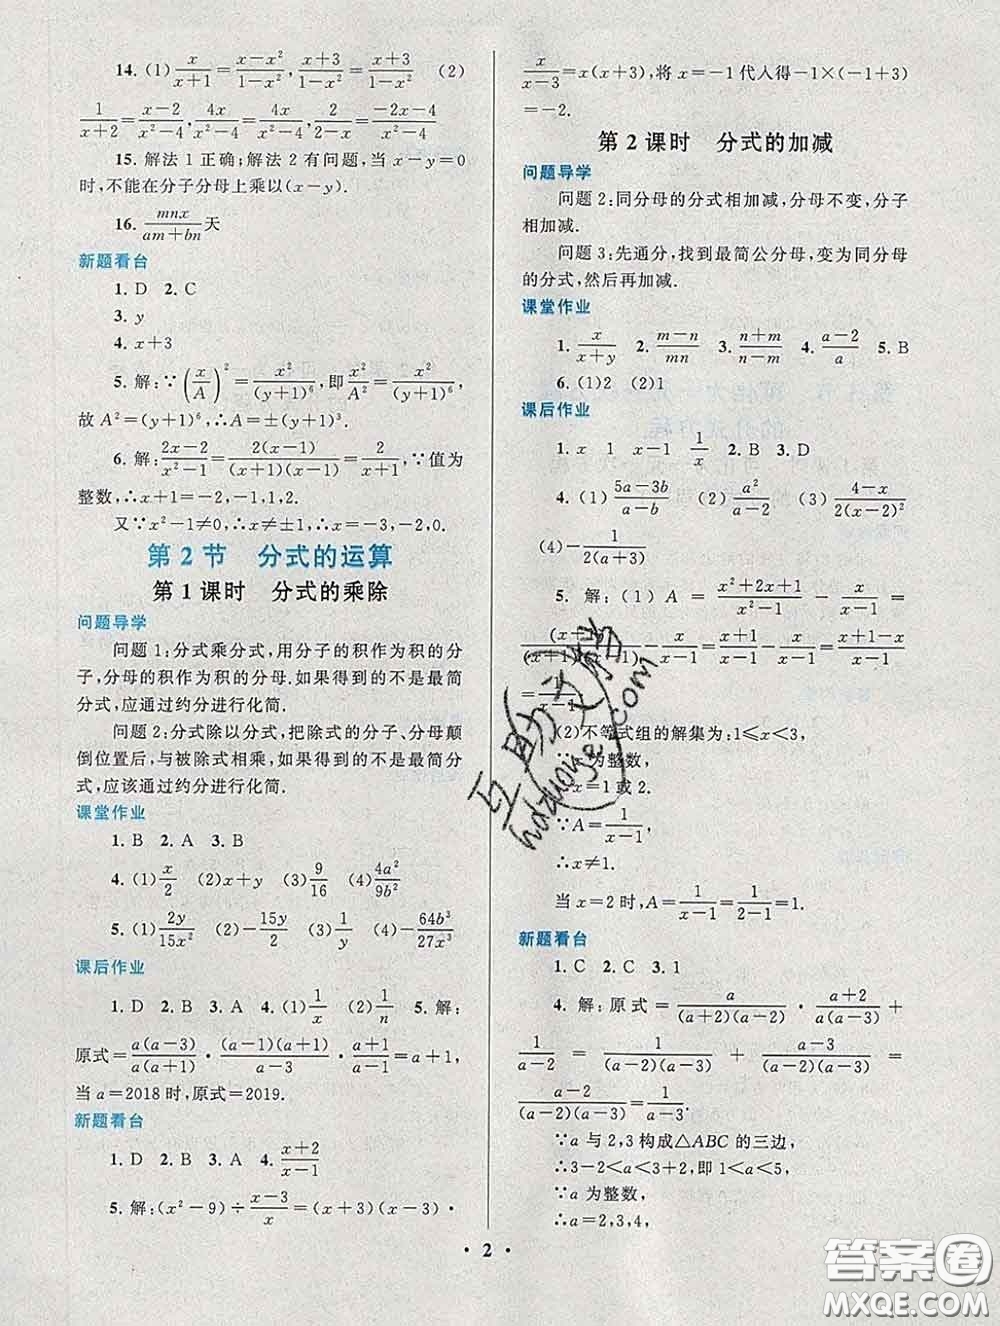 14. (1) x/(x+1)=(x-x²)/(1-x²), (x+3)/(1-x²)=(x+3)/(1-x²) (2)
1/(x+2)=(x-2)/(x²-4), 4x/(x²-4)=4x/(x²-4), 2/(2-x)=(-2x-4)/(x²-4)
15. 解法 1 正确；解法 2 有问题，当 x-y=0
时，不能在分子分母上乘以(x-y).
16. mnx/(am+bn)天
新题看台
1. D 2. C
3. y
4. x+3
5. 解：∵(x/A)²=x²/(y+1)⁶，即x²/A²=x²/(y+1)⁶，
故 A²=(y+1)⁶，∴A=±(y+1)³.
6. 解：(2x-2)/(x²-1)=2(x-1)/((x+1)(x-1))=2/(x+1)，∵值为
整数，∴x+1=-2,-1,1,2.
又∵x²-1≠0，∴x≠±1，∴x=-3,-2,0.
第 2 节 分式的运算
第 1 课时 分式的乘除
问题导学
问题 1：分式乘分式，用分子的积作为积的分
子，分母的积作为积的分母.如果得到的不是最简
分式，应通过约分进行化简.
问题 2：分式除以分式，把除式的分子、分母颠
倒位置后，与被除式相乘，如果得到的不是最简分
式，应该通过约分进行化简.
课堂作业
1. B 2. A 3. B
4. (1)x/2 (2)x+y (3)9/16 (4)4a²/9b²
5. (1)2y/15x² (2)-15y/2 (3)1/y (4)-64b³/27x³
课后作业
1. D 2. B 3. A 4. (1)1/x (2)1/n 5. 解：
原式=a(a-3)/a(a+1)·(a-1)(a+1)/(a-3)·(a+1)/(a-1)=a+1，
当 a=2018 时，原式=2019.
新题看台
1. D 2. B 3. A 4. (x+2)/(x-1)
5. 解：(x²-9)÷(x-3)/x=(x+3)(x-3)·
x/(x-3)=x(x+3)，将 x=-1 代入得-1×(-1+3)
=-2.
第 2 课时 分式的加减
问题导学
问题 2：同分母的分式相加减，分母不变，分子
相加减.
问题 3：先通分，找到最简公分母，变为同分母
的分式，然后再加减.
课堂作业
1. x/(x+y) 2. (m-n)/mn 3. (n+m)/(n-m) 4. (a-2)/a 5. B
6. (1)2 (2)1
课后作业
1. x 1 x-1 1/x 2. B 3. D
4. (1)(5a-3b)/(a-b) (2)a²/(a-2) (3)(4-x)/2(x-2)²
(4)-1/2(a+3)
5. 解：(1)A=(x²+2x+1)/(x²-1)-x/(x-1)=
(x+1)²/(x+1)(x-1)-x/(x-1)=(x+1)/(x-1)-x/(x-1)=(x+1-x)/(x-1)
=1/(x-1).
(2)不等式组的解集为：1≤x<3，
为整数，
x=1 或 2.
∵A=1/(x-1)，
∴x≠1.
当 x=2 时，A=1/(x-1)=1/(2-1)=1.
新题看台
1. C 2. C 3. 1
4. 解：原式=a/((a+2)(a-2))·(a+2)/(a(a-3))+
1/(a-2)=1/((a-2)(a-3))+(a-3)/((a-2)(a-3))=
(a-2)/((a-2)(a-3))=1/(a-3).
∵a 与 2,3 构成△ABC 的三边，
∴3-2<a<3+2，即 1<a<5，
∵a 为整数，
∴a=2,3,4，
· 2 ·
互助文档
hdzuoye.com
答案圈
MXQE.COM